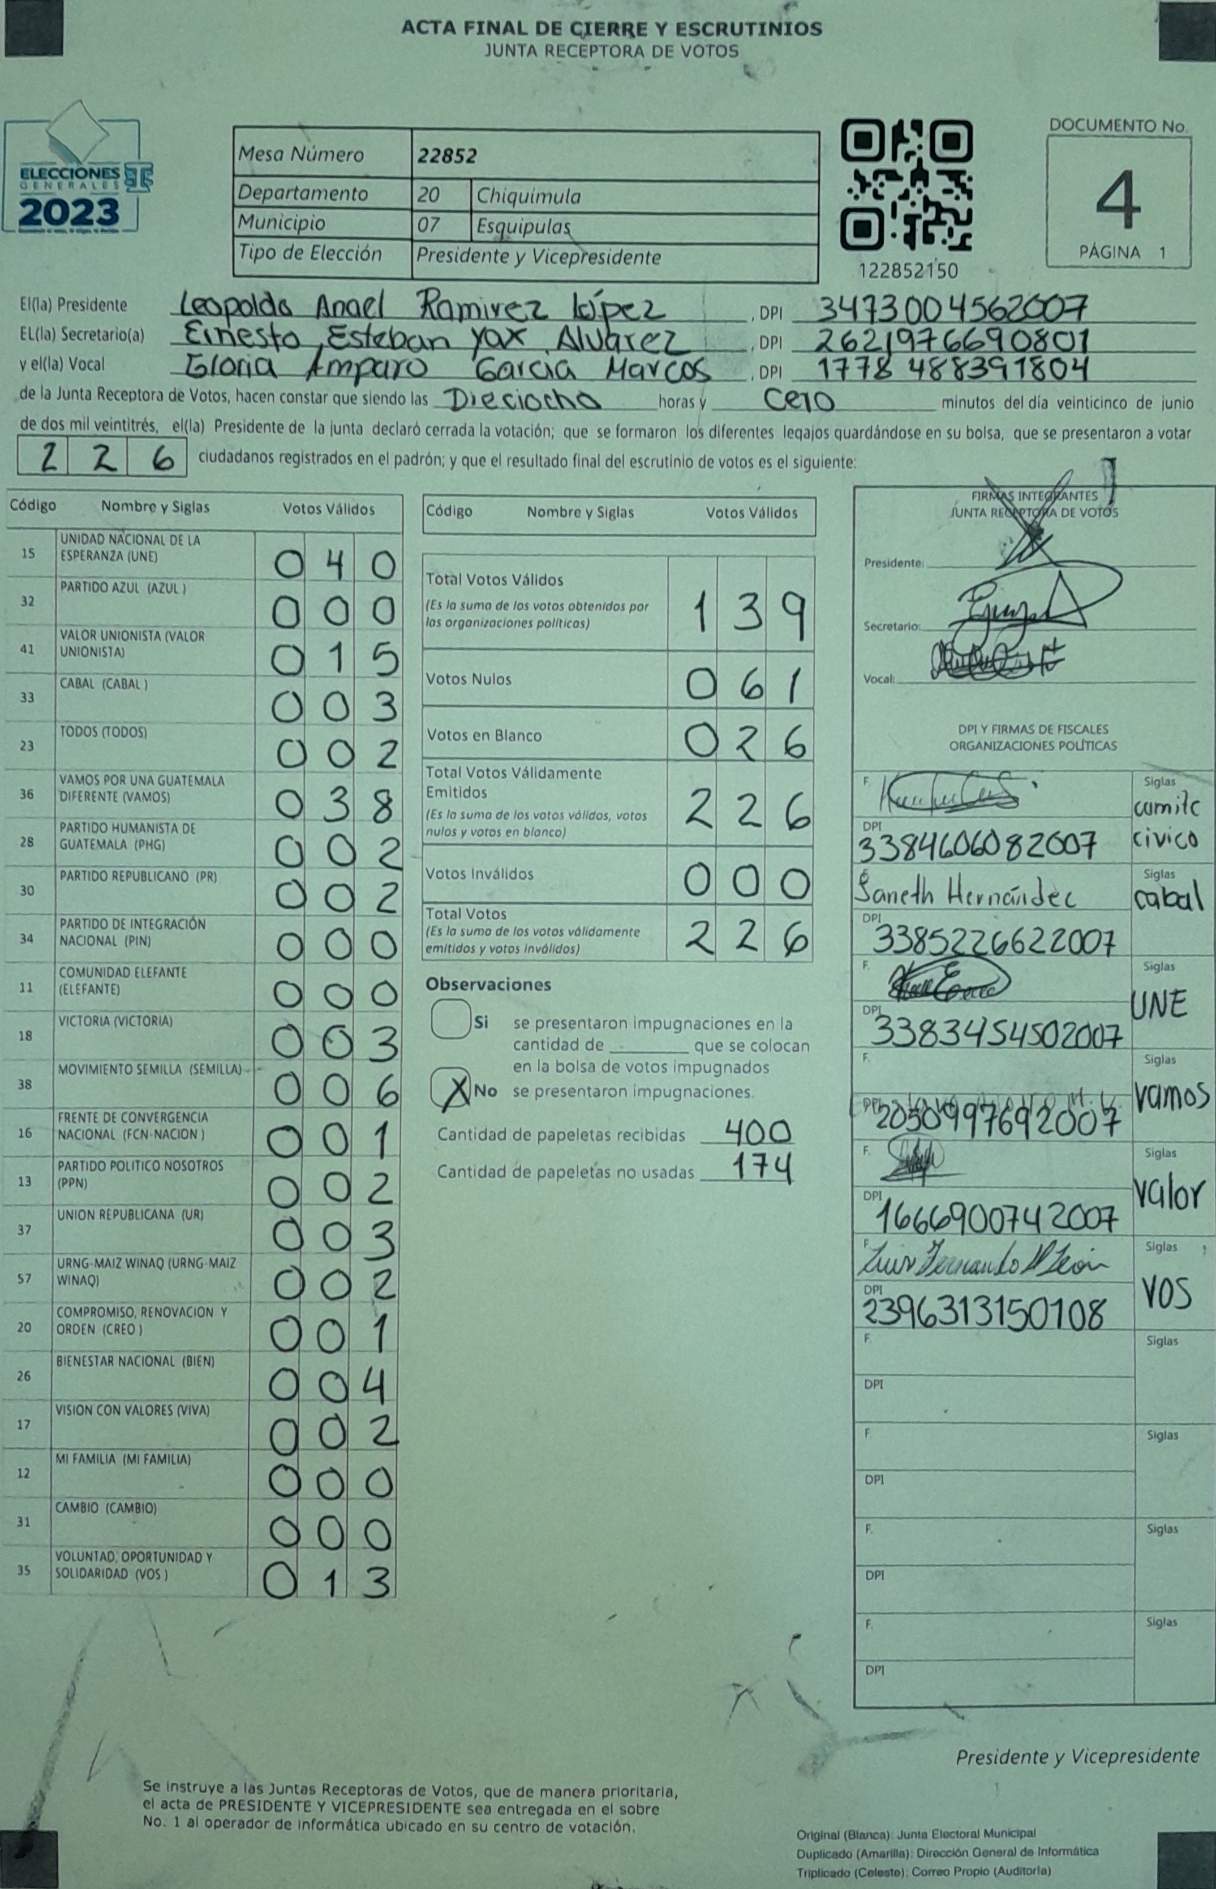 ACTA FINAL DE CIERRE Y ESCRUTINIOS
JUNTA RECEPTORA DE VOTOS
ELECCIONES
GENERALES
2023
Mesa Número 22852
Departamento 20 Chiquimula
Municipio 07 Esquipulas
Tipo de Elección Presidente y Vicepresidente
122852150
DOCUMENTO No.
4
PÁGINA 1
El(la) Presidente Leopoldo Anael Ramirez López, DPI 3473004562007
EL(la) Secretario(a) Ernesto Esteban Yax Alvarez, DPI 2621976690801
y el(la) Vocal Gloria Amparo Garcia Marcos, DPI 1778 488391804
de la Junta Receptora de Votos, hacen constar que siendo las Dieciocho horas y Cero minutos del día veinticinco de junio
de dos mil veintitrés, el(la) Presidente de la junta declaró cerrada la votación; que se formaron los diferentes legajos guardándose en su bolsa, que se presentaron a votar
226 ciudadanos registrados en el padrón; y que el resultado final del escrutinio de votos es el siguiente:
Código Nombre y Siglas Votos Válidos
15 UNIDAD NACIONAL DE LA
ESPERANZA (UNE) 040
32 PARTIDO AZUL (AZUL) 000
41 VALOR UNIONISTA (VALOR
UNIONISTA) 015
33 CABAL (CABAL) 003
23 TODOS (TODOS) 002
36 VAMOS POR UNA GUATEMALA
DIFERENTE (VAMOS) 038
28 PARTIDO HUMANISTA DE
GUATEMALA (PHG) 002
30 PARTIDO REPUBLICANO (PR) 002
34 PARTIDO DE INTEGRACIÓN
NACIONAL (PIN) 000
11 COMUNIDAD ELEFANTE
(ELEFANTE) 000
18 VICTORIA (VICTORIA) 003
38 MOVIMIENTO SEMILLA (SEMILLA) 006
16 FRENTE DE CONVERGENCIA
NACIONAL (FCN-NACION) 001
13 PARTIDO POLITICO NOSOTROS
(PPN) 002
37 UNION REPUBLICANA (UR) 003
57 URNG-MAIZ WINAQ (URNG-MAIZ
WINAQ) 002
20 COMPROMISO, RENOVACION Y
ORDEN (CREO) 001
26 BIENESTAR NACIONAL (BIEN) 004
17 VISION CON VALORES (VIVA) 002
12 MI FAMILIA (MI FAMILIA) 000
31 CAMBIO (CAMBIO) 000
35 VOLUNTAD, OPORTUNIDAD Y
SOLIDARIDAD (VOS) 013
Código Nombre y Siglas Votos Válidos
Total Votos Válidos 139
(Es la suma de los votos obtenidos por
las organizaciones políticas)
Votos Nulos 061
Votos en Blanco 026
Total Votos Válidamente
Emitidos 226
(Es la suma de los votos válidos, votos
nulos y votos en blanco)
Votos Inválidos 000
Total Votos 226
(Es la suma de los votos válidamente
emitidos y votos inválidos)
Observaciones
Si se presentaron impugnaciones en la
cantidad de ________ que se colocan
en la bolsa de votos impugnados
X No se presentaron impugnaciones.
Cantidad de papeletas recibidas 400
Cantidad de papeletas no usadas 174
FIRMAS INTEGRANTES
JUNTA RECEPTORA DE VOTOS
Presidente:
Secretario:
Vocal:
DPI Y FIRMAS DE FISCALES
ORGANIZACIONES POLÍTICAS
F. Siglas
comite
civico
DPI 3384606082007
Saneth Hernández Siglas cabal
DPI 3385226622007
F. Siglas
UNE
DPI 3383454502007
F. Siglas
vamos
DPI 2050997692007
F. Siglas
valor
DPI 1666900742007
F. Luis Fernando D León Siglas
VOS
DPI 2396313150108
F. Siglas
DPI
F. Siglas
DPI
F. Siglas
DPI
F. Siglas
DPI
Presidente y Vicepresidente
Se instruye a las Juntas Receptoras de Votos, que de manera prioritaria,
el acta de PRESIDENTE Y VICEPRESIDENTE sea entregada en el sobre
No. 1 al operador de informática ubicado en su centro de votación.
Original (Blanca): Junta Electoral Municipal
Duplicado (Amarilla): Dirección General de Informática
Triplicado (Celeste): Correo Propio (Auditoría)